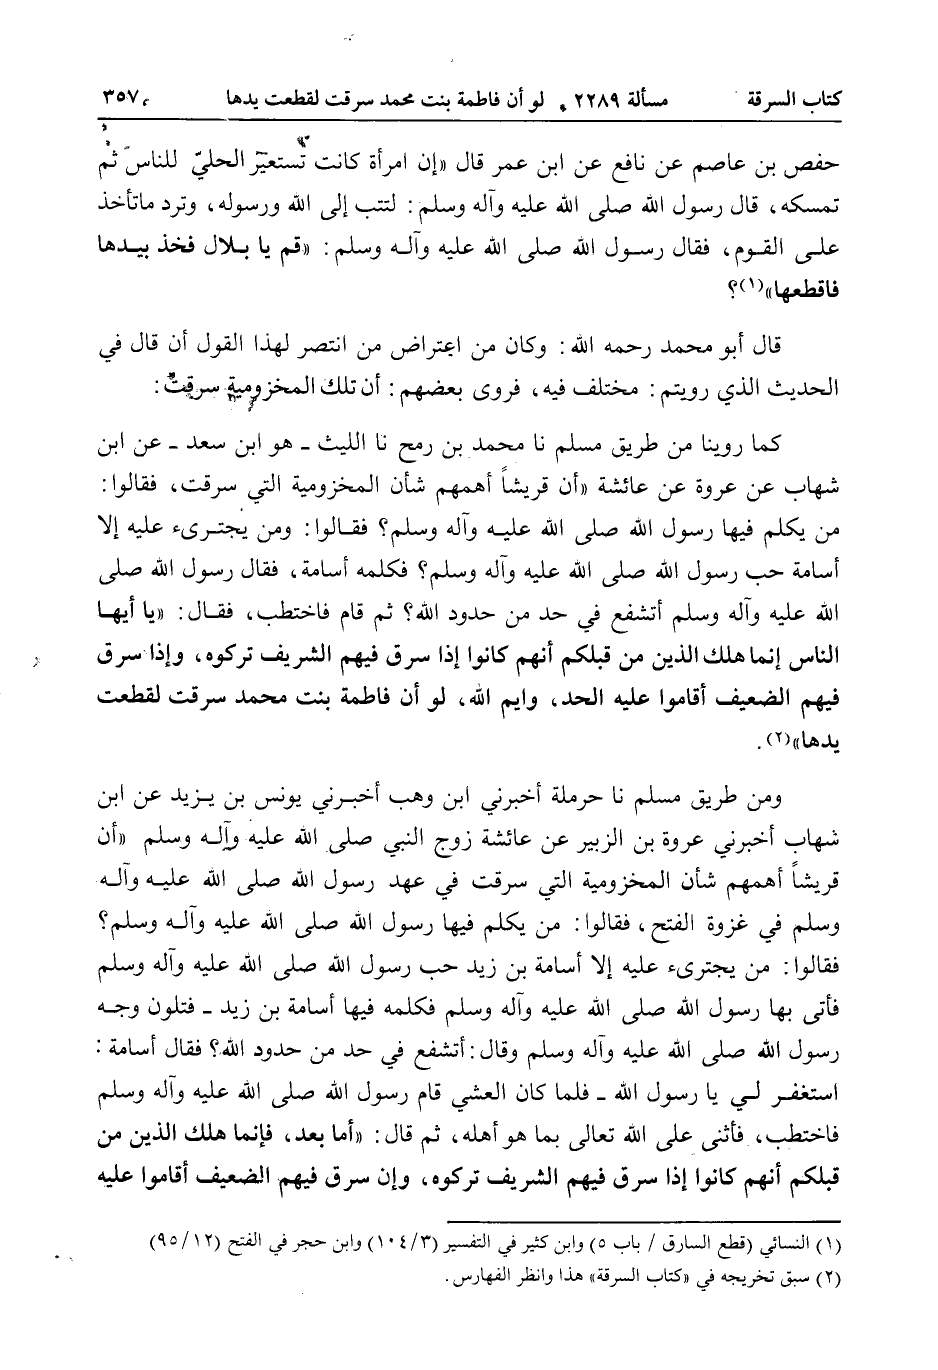 كتاب السرقة مسألة ٢٢٨٩ . لو أن فاطمة بنت محمد سرقت لقطعت يدها ٣٥٧
حفص بن عاصم عن نافع عن ابن عمر قال «إن امرأة كانت تستعير الحلي للناس ثم
تمسكه، قال رسول الله صلى الله عليه وآله وسلم: لتتب إلى الله ورسوله، وترد ماتأخذ
على القوم، فقال رسول الله صلى الله عليه وآله وسلم: «قم يا بلال فخذ بيدها
فاقطعها»(١)؟
قال أبو محمد رحمه الله: وكان من اعتراض من انتصر لهذا القول أن قال في
الحديث الذي رويتم: مختلف فيه، فروى بعضهم: أن تلك المخزومية سرقت:
كما روينا من طريق مسلم نا محمد بن رمح نا الليث ـ هو ابن سعد ـ عن ابن
شهاب عن عروة عن عائشة «أن قريشاً أهمهم شأن المخزومية التي سرقت، فقالوا:
من يكلم فيها رسول الله صلى الله عليه وآله وسلم؟ فقالوا: ومن يجترىء عليه إلا
أسامة حب رسول الله صلى الله عليه وآله وسلم؟ فكلمه أسامة، فقال رسول الله صلى
الله عليه وآله وسلم أتشفع في حد من حدود الله؟ ثم قام فاختطب، فقال: «يا أيها
الناس إنما هلك الذين من قبلكم أنهم كانوا إذا سرق فيهم الشريف تركوه، وإذا سرق
فيهم الضعيف أقاموا عليه الحد، وايم الله، لو أن فاطمة بنت محمد سرقت لقطعت
يدها»(٢).
ومن طريق مسلم نا حرملة أخبرني ابن وهب أخبرني يونس بن يزيد عن ابن
شهاب أخبرني عروة بن الزبير عن عائشة زوج النبي صلى الله عليه وآله وسلم «أن
قريشاً أهمهم شأن المخزومية التي سرقت في عهد رسول الله صلى الله عليه وآله
وسلم في غزوة الفتح، فقالوا: من يكلم فيها رسول الله صلى الله عليه وآله وسلم؟
فقالوا: من يجترىء عليه إلا أسامة بن زيد حب رسول الله صلى الله عليه وآله وسلم
فأتى بها رسول الله صلى الله عليه وآله وسلم فكلمه فيها أسامة بن زيد ـ فتلون وجه
رسول الله صلى الله عليه وآله وسلم وقال: أتشفع في حد من حدود الله؟ فقال أسامة:
استغفر لي يا رسول الله ـ فلما كان العشي قام رسول الله صلى الله عليه وآله وسلم
فاختطب، فأثنى على الله تعالى بما هو أهله، ثم قال: «أما بعد، فإنما هلك الذين من
قبلكم أنهم كانوا إذا سرق فيهم الشريف تركوه، وإن سرق فيهم الضعيف أقاموا عليه
(١) النسائي (قطع السارق / باب ٥) وابن كثير في التفسير (٣/ ١٠٤) وابن حجر في الفتح (١٢/ ٩٥)
(٢) سبق تخريجه في «كتاب السرقة» هذا وانظر الفهارس.